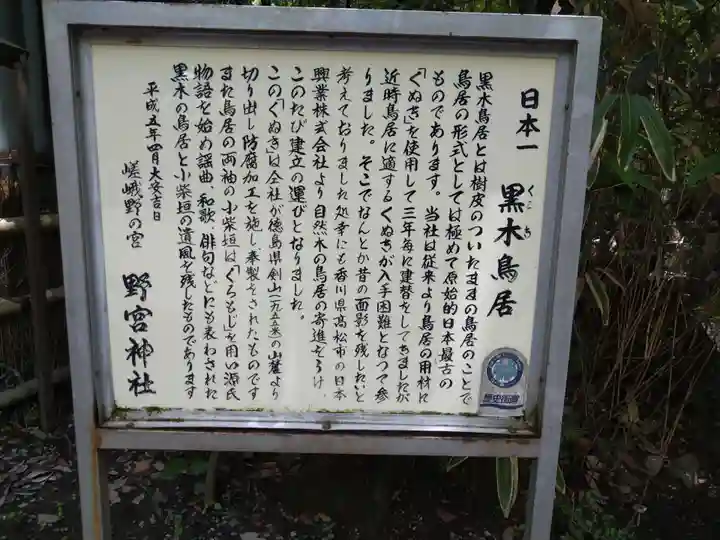 日本一 黒木鳥居
黒木鳥居とは樹皮のついたままの鳥居のことで
鳥居の形式としては極めて原始的日本最古の
ものであります。当社は従来より鳥居の用材に
「くぬぎ」を使用して三年毎に建替をしてきましたが
近時鳥居に適するくぬぎが入手困難となつて参
りました。そこでなんとか昔の面影を残したいと
考えておりました処幸にも香川県高松市の日本
興業株式会社より自然木の鳥居の寄進をうけ
このたび建立の運びとなりました。
この「くぬぎ」は会社が徳島県剣山(一九五五米)の山麓より
切り出し防腐加工を施し奉製をされたものです
また鳥居の両袖の小柴垣は「くろもじ」を用い源氏
物語を始め謡曲、和歌、俳句などにも表わされた
黒木の鳥居と小柴垣の遺風を残したものであります
平成五年四月大安吉日
嵯峨野の宮 野宮神社
歴史街道